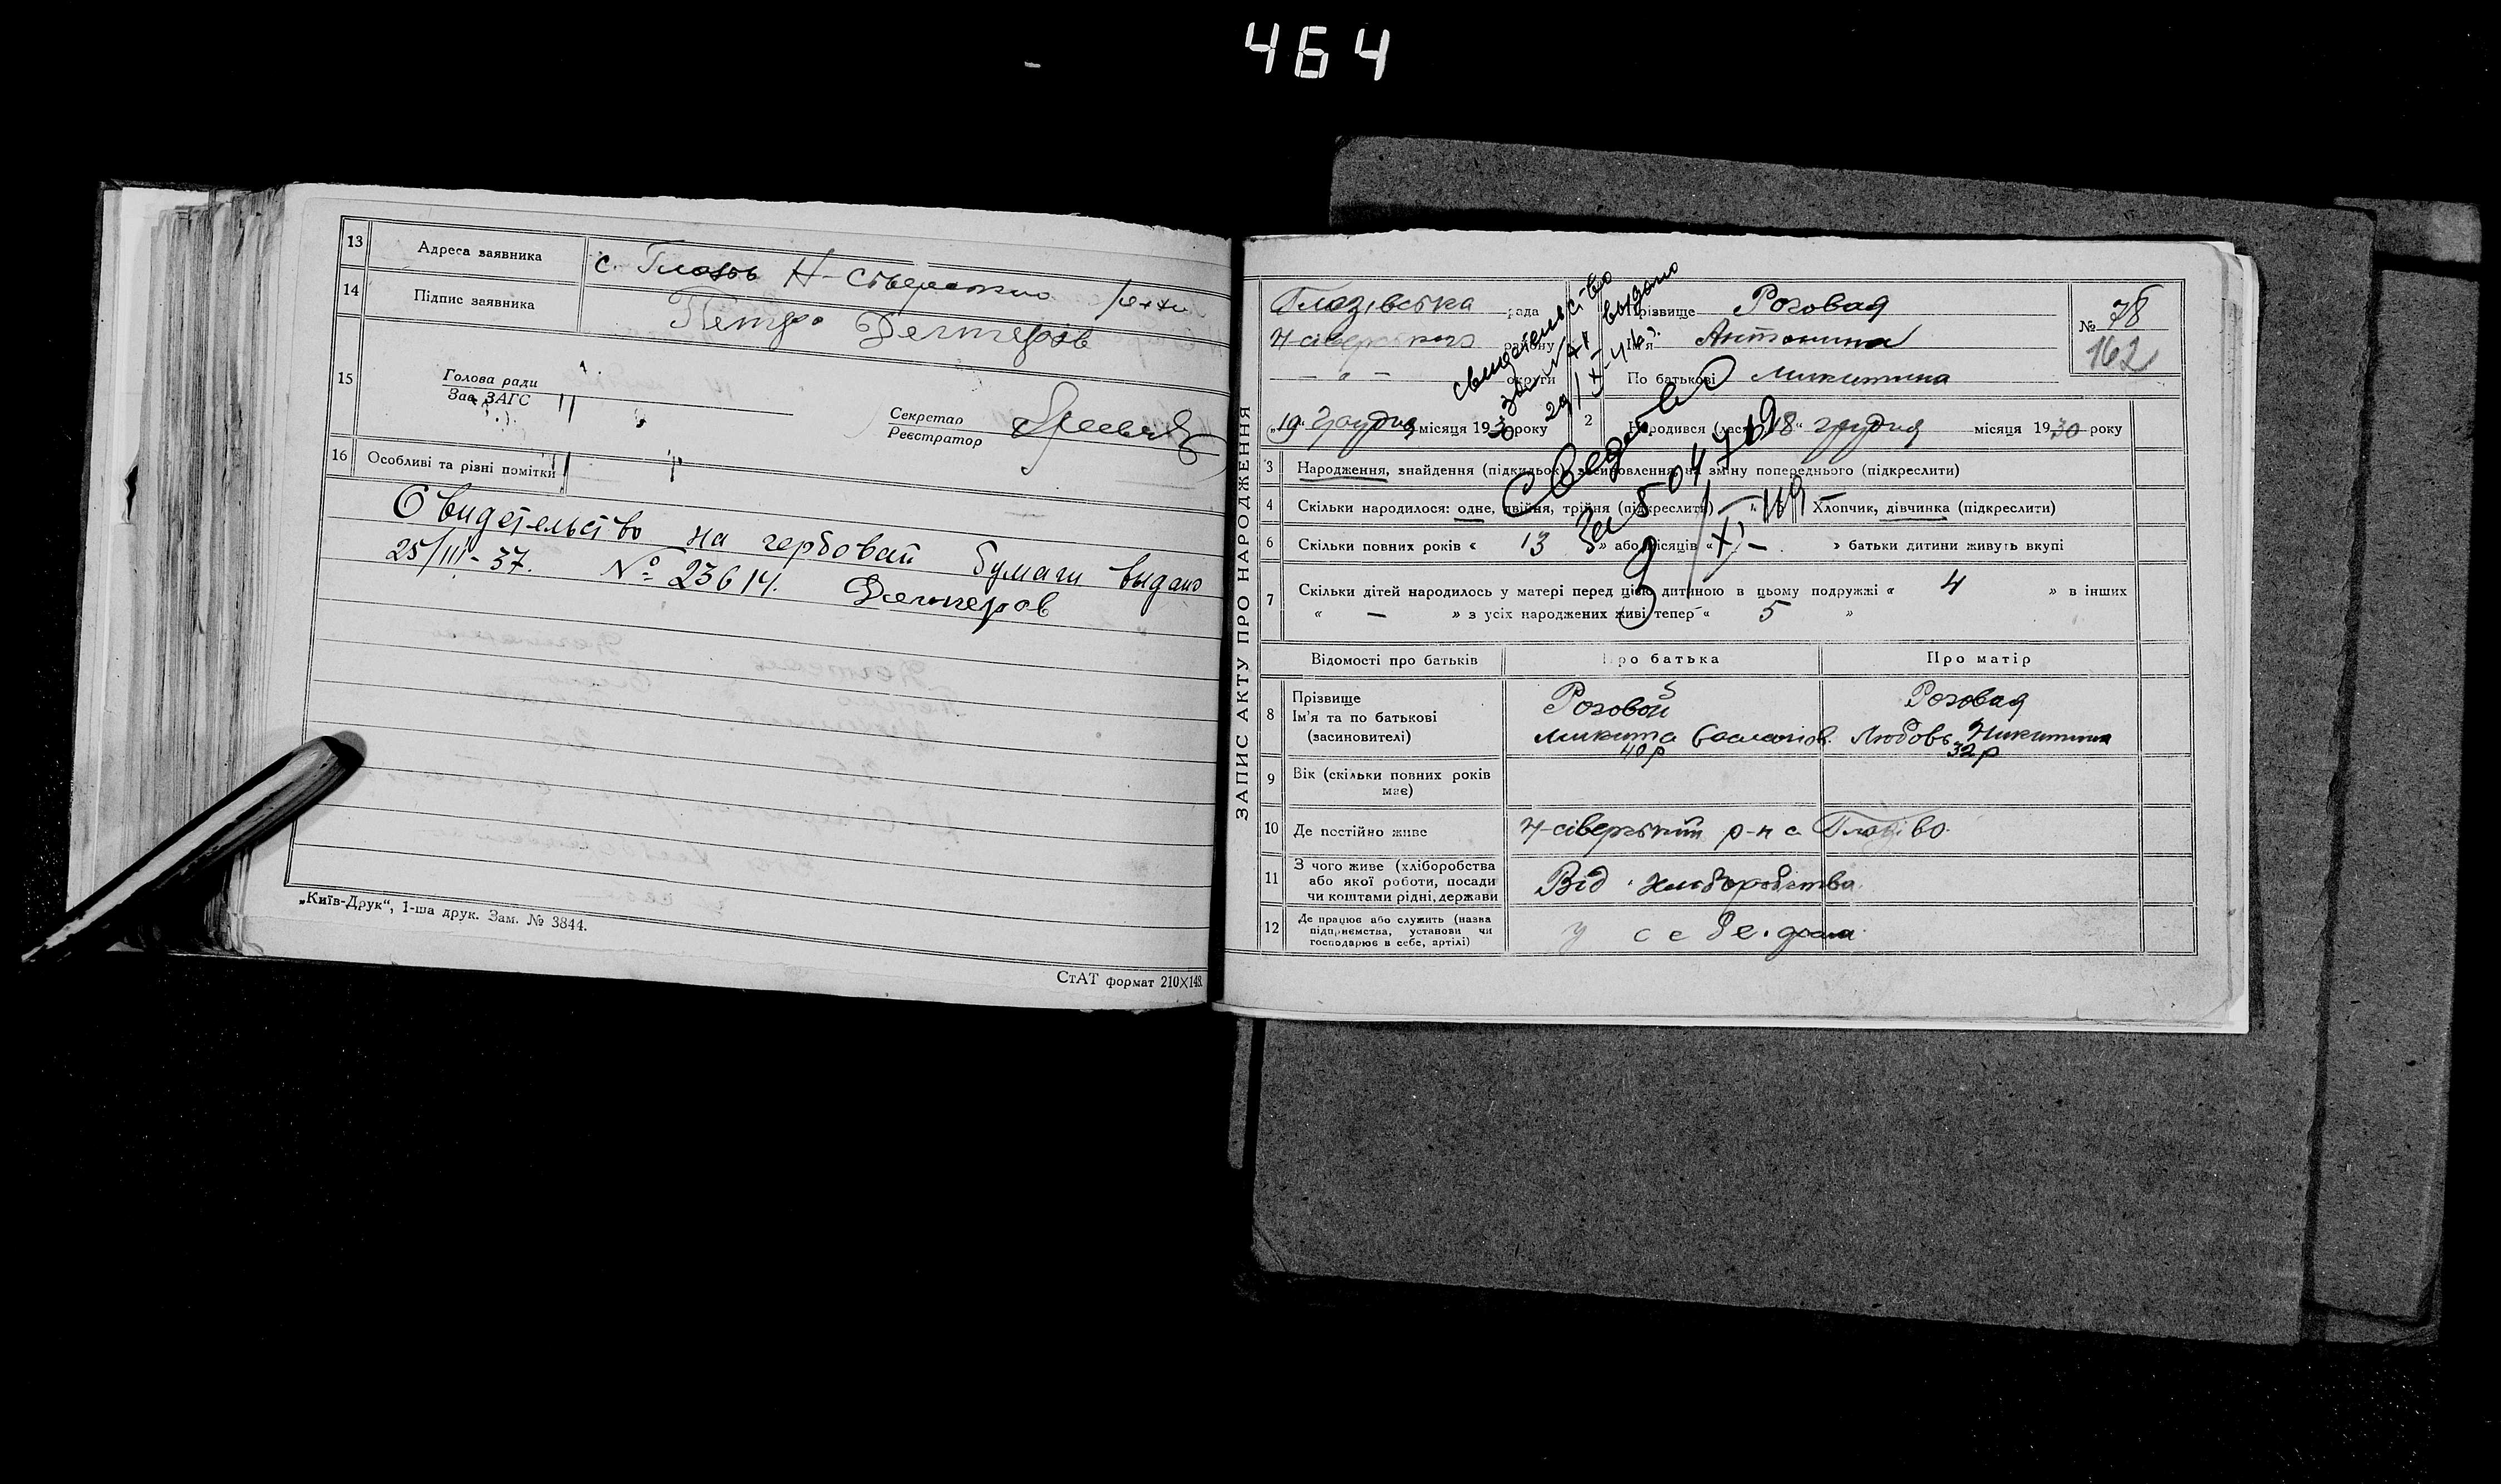 464
13 Адреса заявника с. Глазов Н-Сіверского р-ну
14 Підпис заявника Петро Дегтерів
15 Голова ради
Зав. ЗАГС
Секретар
Реєстратор
16 Особливі та різні помітки
Свидетельство на гербовай бумаги выдано
25/III-37. № 23614. Дегтеров
„Київ-Друк“, 1-ша друк. Зам. № 3844.
СтАТ формат 210×148.
ЗАПИС АКТУ ПРО НАРОДЖЕННЯ
Глазівська рада
Н-сіверського району
— „ — округи
„19“ грудня місяця 1930 року
Прізвище Роговая
Ім'я Антонина
По батькові Микитина
№ 78
162
2 Народився (лась) „18“ грудня місяця 1930 року
свидетельство выдано
за №
29/X-46 г.
Свед-во
9/XI-
3 Народження, знайдення (підкидьок), засиновлення чи зміну попереднього (підкреслити)
4 Скільки народилося: одне, двійня, трійня (підкреслити) Хлопчик, дівчинка (підкреслити)
6 Скільки повних років « 13 » або місяців « — » батьки дитини живуть вкупі
7 Скільки дітей народилось у матері перед цією дитиною в цьому подружжі « 4 » в інших
« — » з усіх народжених живі тепер « 5 »
Відомості про батьків Про батька Про матір
8 Прізвище Роговой Роговая
Ім'я та по батькові
(засиновителі) Микита Любовь Никитина
40 р 32 р
9 Вік (скільки повних років
має)
10 Де постійно живе Н-сіверський р-н с Глазіво.
11 З чого живе (хліборобства
або якої роботи, посади
чи коштами рідні, держави Від хліборобства
12 Де працює або служить (назва
підприємства, установи чи
господарює в себе, артілі) у себе дома